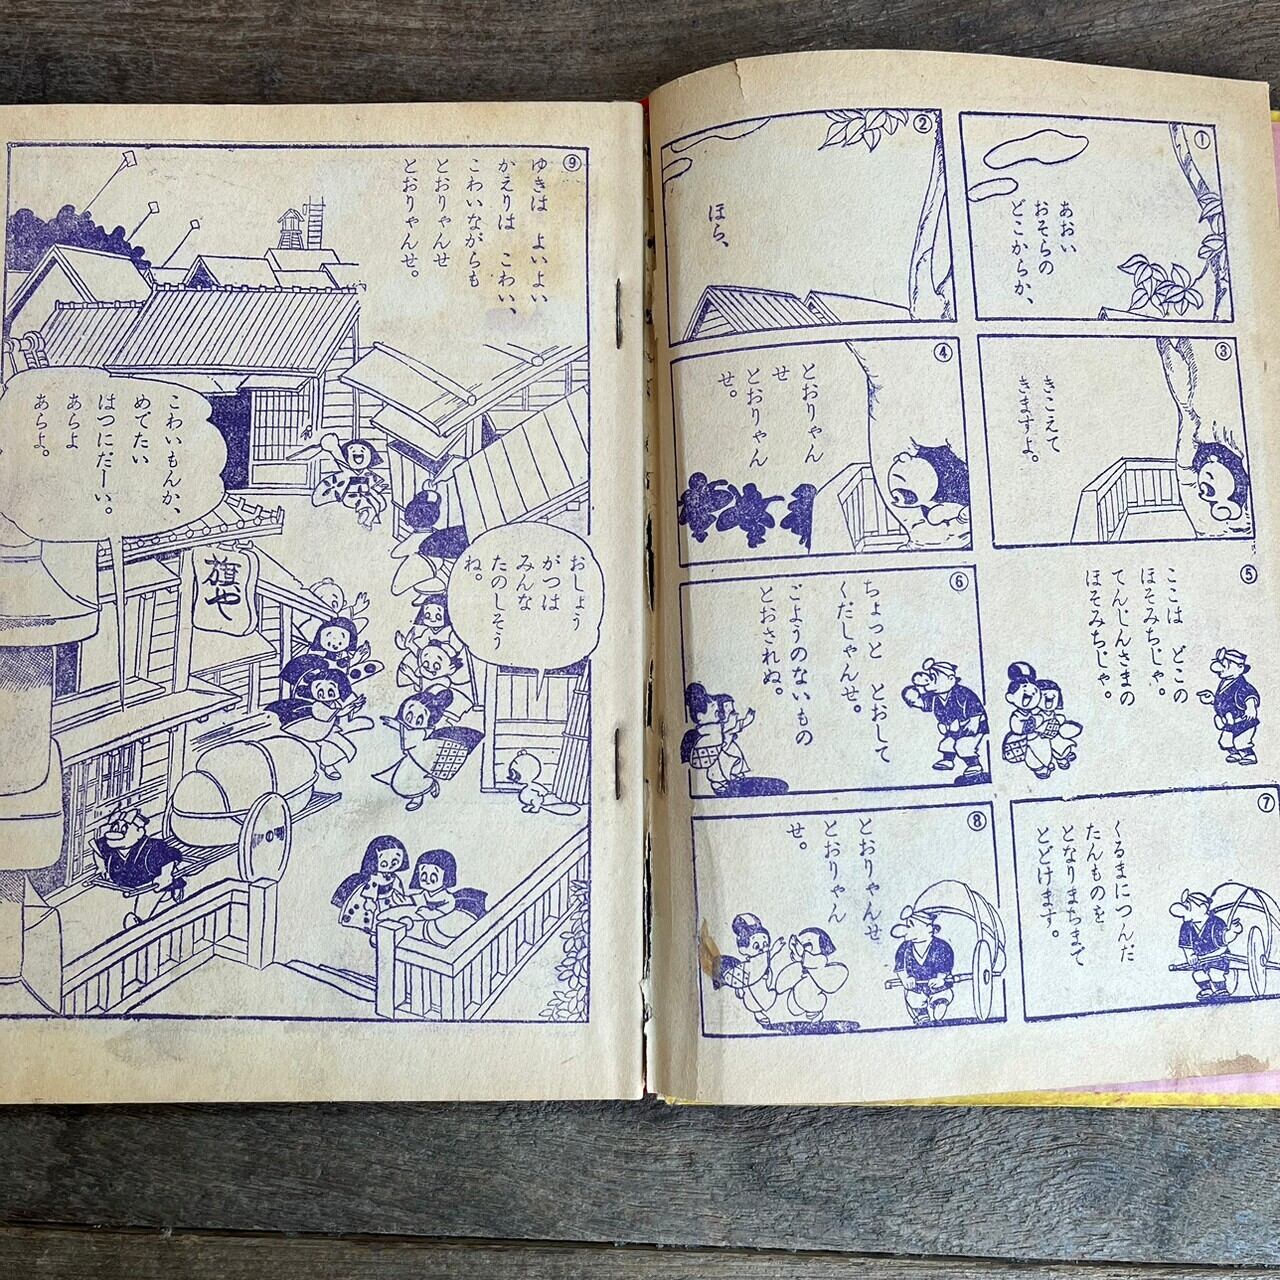 ①
あおい
おそらの
どこからか、
②
ほら、
③
きこえて
きますよ。
④
とおりゃん
せ
とおりゃん
せ。
⑤
ここは どこの
ほそみちじゃ。
てんじんさまの
ほそみちじゃ。
⑥
ちょっと とおして
くだしゃんせ。
ごようのないもの
とおされぬ。
⑦
くるまにつんだ
たんものを
となりまちまで
とどけます。
⑧
とおりゃんせ
とおりゃん
せ。
⑨
ゆきは よいよい
かえりは こわい、
こわいながらも
とおりゃんせ
とおりゃんせ。
おしょう
がつは
みんな
たのしそう
ね。
こわいもんか、
めでたい
はつにだーい。
あらよ
あらよ。
旗や